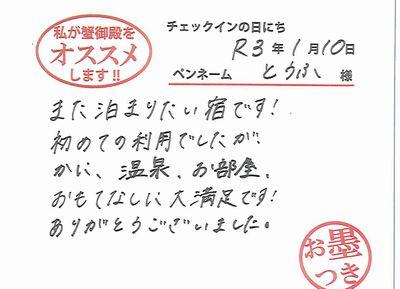 私が蟹御殿を
オススメ
します!!
チェックインの日にち
R3年1月10日
ペンネーム とうふ 様
また泊まりたい宿です!
初めての利用でしたが、
かに、温泉、お部屋、
おもてなしに大満足です!
ありがとうございました。
お墨
つき